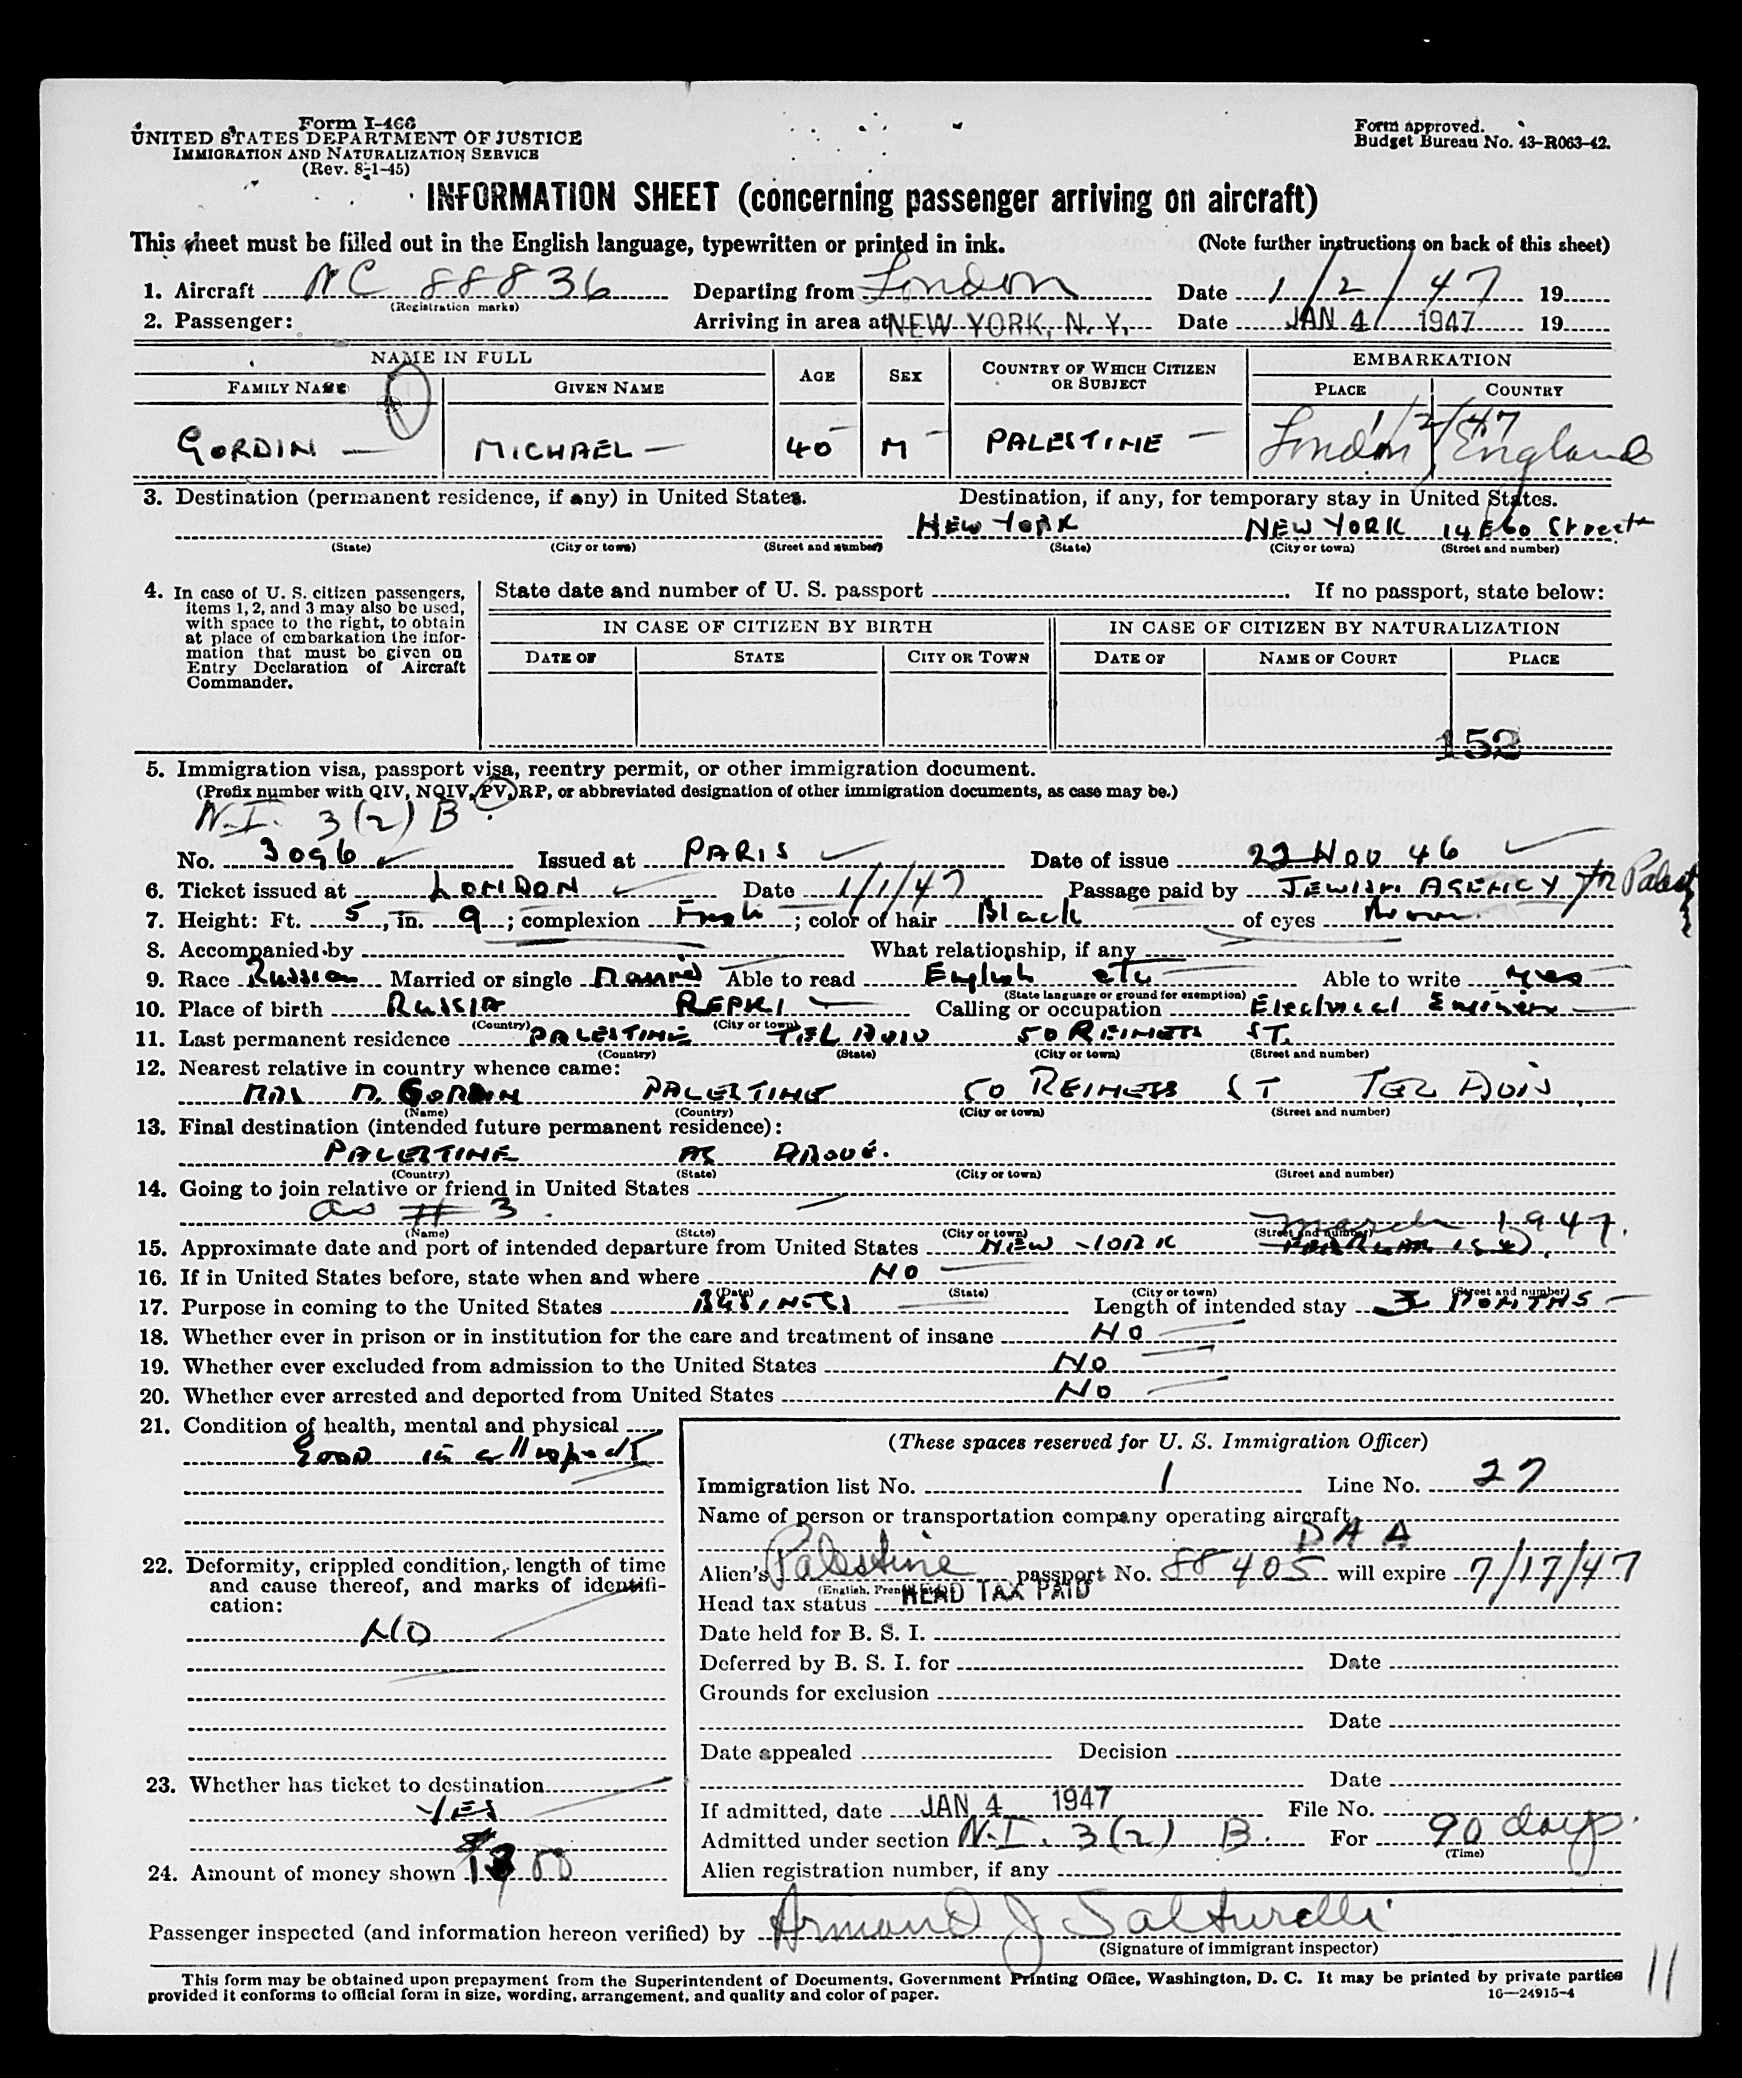 Form I-466
UNITED STATES DEPARTMENT OF JUSTICE
IMMIGRATION AND NATURALIZATION SERVICE
(Rev. 8-1-45)
Form approved.
Budget Bureau No. 43-R063-42.
INFORMATION SHEET (concerning passenger arriving on aircraft)
This sheet must be filled out in the English language, typewritten or printed in ink. (Note further instructions on back of this sheet)
1. Aircraft NC 88836 Departing from London Date 1/2/47 19
(Registration marks)
2. Passenger: Arriving in area at NEW YORK, N. Y. Date JAN 4 1947 19
NAME IN FULL AGE SEX COUNTRY OF WHICH CITIZEN OR SUBJECT EMBARKATION
FAMILY NAME GIVEN NAME PLACE COUNTRY
1/2/47
GORDIN MICHAEL 40 M PALESTINE London England
3. Destination (permanent residence, if any) in United States. Destination, if any, for temporary stay in United States.
NEW YORK NEW YORK 14 E 60 Street
(State) (City or town) (Street and number) (State) (City or town) (Street and number)
4. In case of U. S. citizen passengers, items 1, 2, and 3 may also be used, with space to the right, to obtain at place of embarkation the information that must be given on Entry Declaration of Aircraft Commander.
State date and number of U. S. passport If no passport, state below:
IN CASE OF CITIZEN BY BIRTH IN CASE OF CITIZEN BY NATURALIZATION
DATE OF STATE CITY OR TOWN DATE OF NAME OF COURT PLACE
152
5. Immigration visa, passport visa, reentry permit, or other immigration document.
(Prefix number with QIV, NQIV, PV, RP, or abbreviated designation of other immigration documents, as case may be.)
N.I. 3(2) B
No. 3096 Issued at PARIS Date of issue 22 NOV 46
6. Ticket issued at LONDON Date 1/1/47 Passage paid by JEWISH AGENCY for Palest
7. Height: Ft. 5, in. 9; complexion Fresh; color of hair Black of eyes Brown
8. Accompanied by What relationship, if any
9. Race Russian Married or single Married Able to read English etc Able to write yes
(State language or ground for exemption)
10. Place of birth RUSSIA REPKI Calling or occupation Electrical Engineer
(Country) (City or town)
11. Last permanent residence PALESTINE TEL AVIV 50 REINESS ST.
(Country) (State) (City or town) (Street and number)
12. Nearest relative in country whence came:
MRS M. GORDIN PALESTINE 50 REINESS ST TEL AVIV
(Name) (Country) (City or town) (Street and number)
13. Final destination (intended future permanent residence):
PALESTINE AS ABOVE.
(Country) (State) (City or town) (Street and number)
14. Going to join relative or friend in United States
as # 3.
(Name) (State) (City or town) (Street and number)
march 1947.
15. Approximate date and port of intended departure from United States NEW YORK
16. If in United States before, state when and where NO
(Date) (State) (City or town) (Street and number)
17. Purpose in coming to the United States BUSINESS Length of intended stay MONTHS
18. Whether ever in prison or in institution for the care and treatment of insane NO
19. Whether ever excluded from admission to the United States NO
20. Whether ever arrested and deported from United States NO
21. Condition of health, mental and physical
GOOD in all respects
22. Deformity, crippled condition, length of time and cause thereof, and marks of identification:
NO
23. Whether has ticket to destination
YES
24. Amount of money shown
(These spaces reserved for U. S. Immigration Officer)
Immigration list No. 1 Line No. 27
Name of person or transportation company operating aircraft
PAA
Alien's Palestine passport No. 88405 will expire 7/17/47
Head tax status HEAD TAX PAID
Date held for B. S. I.
Deferred by B. S. I. for Date
Grounds for exclusion
Date
Date appealed Decision
Date
If admitted, date JAN 4 1947 File No.
Admitted under section N.I. 3(2) B. For 90 days.
(Time)
Alien registration number, if any
Passenger inspected (and information hereon verified) by Armand J Salturelli
(Signature of immigrant inspector)
11
This form may be obtained upon prepayment from the Superintendent of Documents, Government Printing Office, Washington, D. C. It may be printed by private parties
provided it conforms to official form in size, wording, arrangement, and quality and color of paper. 16—24915-4